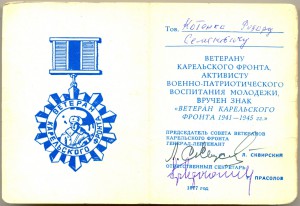 ВЕТЕРАН
КАРЕЛЬСКОГО ФРОНТА
Тов. Котенко Федору
Семеновичу
ВЕТЕРАНУ
КАРЕЛЬСКОГО ФРОНТА,
АКТИВИСТУ
ВОЕННО-ПАТРИОТИЧЕСКОГО
ВОСПИТАНИЯ МОЛОДЕЖИ,
ВРУЧЕН ЗНАК
«ВЕТЕРАН КАРЕЛЬСКОГО
ФРОНТА 1941—1945 гг.»
ПРЕДСЕДАТЕЛЬ СОВЕТА ВЕТЕРАНОВ
КАРЕЛЬСКОГО ФРОНТА
ГЕНЕРАЛ-ЛЕЙТЕНАНТ
Л. СКВИРСКИЙ
ОТВЕТСТВЕННЫЙ СЕКРЕТАРЬ
ПРАСОЛОВ
1977 год